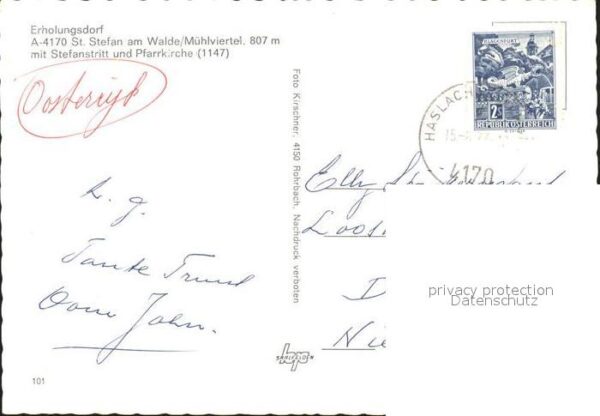 Erholungsdorf
A-4170 St. Stefan am Walde/Mühlviertel. 807 m
mit Stefanstritt und Pfarrkirche (1147)
Oosterrijk
L. g.
Tante Truus
Oom John.
101
Foto Kirschner, 4150 Rohrbach. Nachdruck verboten
KLAGENFURT
2S
REPUBLIK OSTERREICH
HASLACH
4170
Elly
Loos
D
Nie
privacy protection
Datenschutz